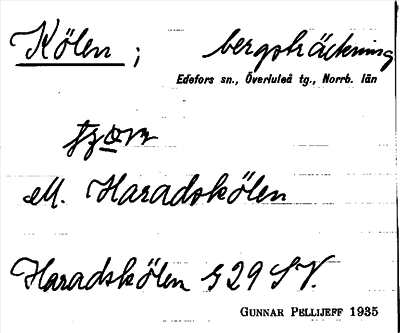 Kölen ; bergsträckning
Edefors sn., Överluleå tg., Norrb. län
ell. Haradskölen
Haradskölen § 29 SV.
GUNNAR PELLIJEFF 1935